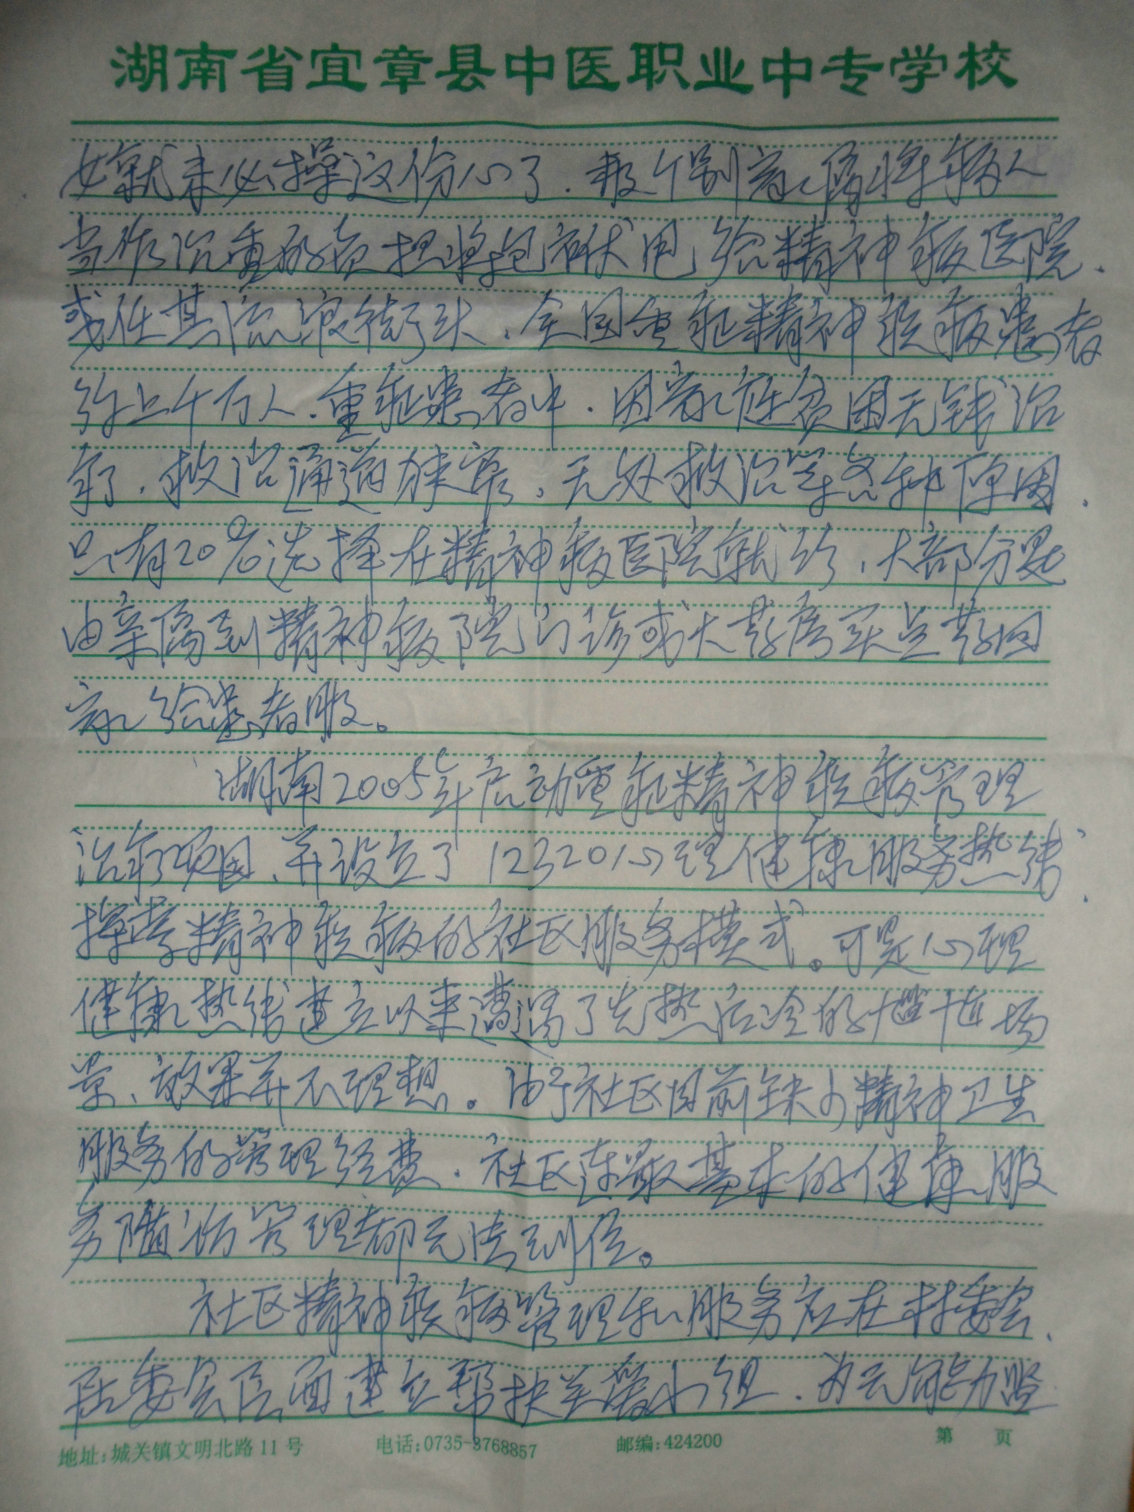 湖南省宜章县中医职业中专学校
女就未必操这份心了.报个别家属将病人
当作沉重的负担将包袱甩给精神病医院.
或任其流浪街头.全国重症精神疾病患者
约上千万人.重症患者中.因家庭贫困无钱治
疗.救治通道狭窄、无处救治等各种原因.
只有20%选择在精神病医院就诊,大部分是
由亲属到精神病院门诊或大药房买点药回
家给患者服。
湖南2005年启动重症精神疾病管理
治疗项目、并设立了12320心理健康服务热线.
探索精神疾病的社区服务模式。可是心理
健康热线建立以来遭遇了先热后冷的尴尬场
景、效果并不理想。由于社区目前缺少精神卫生
服务的管理经费.社区连最基本的健康服
务随访管理都无法到位。
社区精神疾病管理和服务应在村委会、
居委会层面建立帮扶关爱小组.为无能力监
地址:城关镇文明北路11号 电话:0735-3768857 邮编:424200 第 页